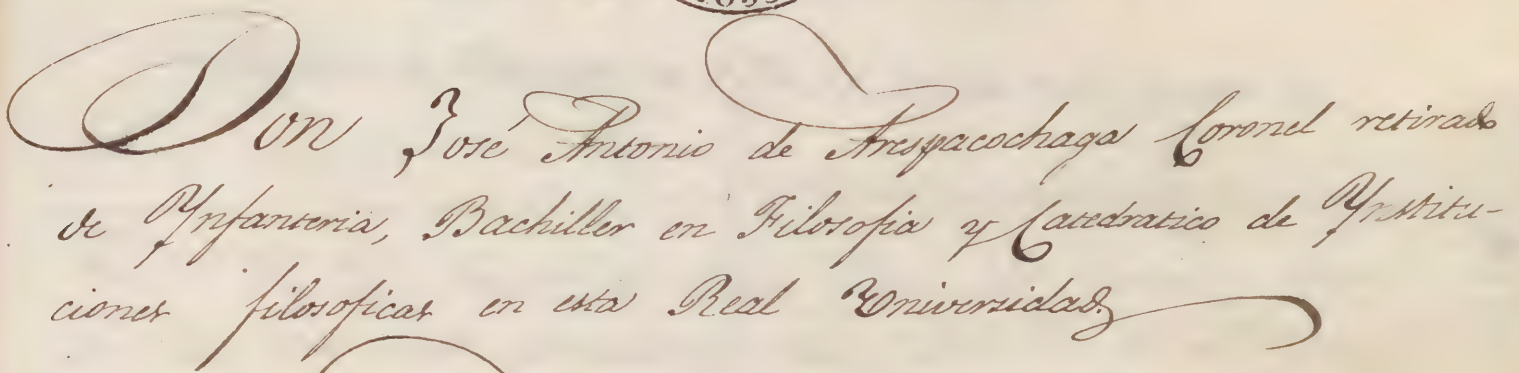 Don José Antonio de Arespacochaga Coronel retirado
de Ynfanteria, Bachiller en Filosofia y Catedratico de Ynstitu-
ciones filosoficas en esta Real Universidad.